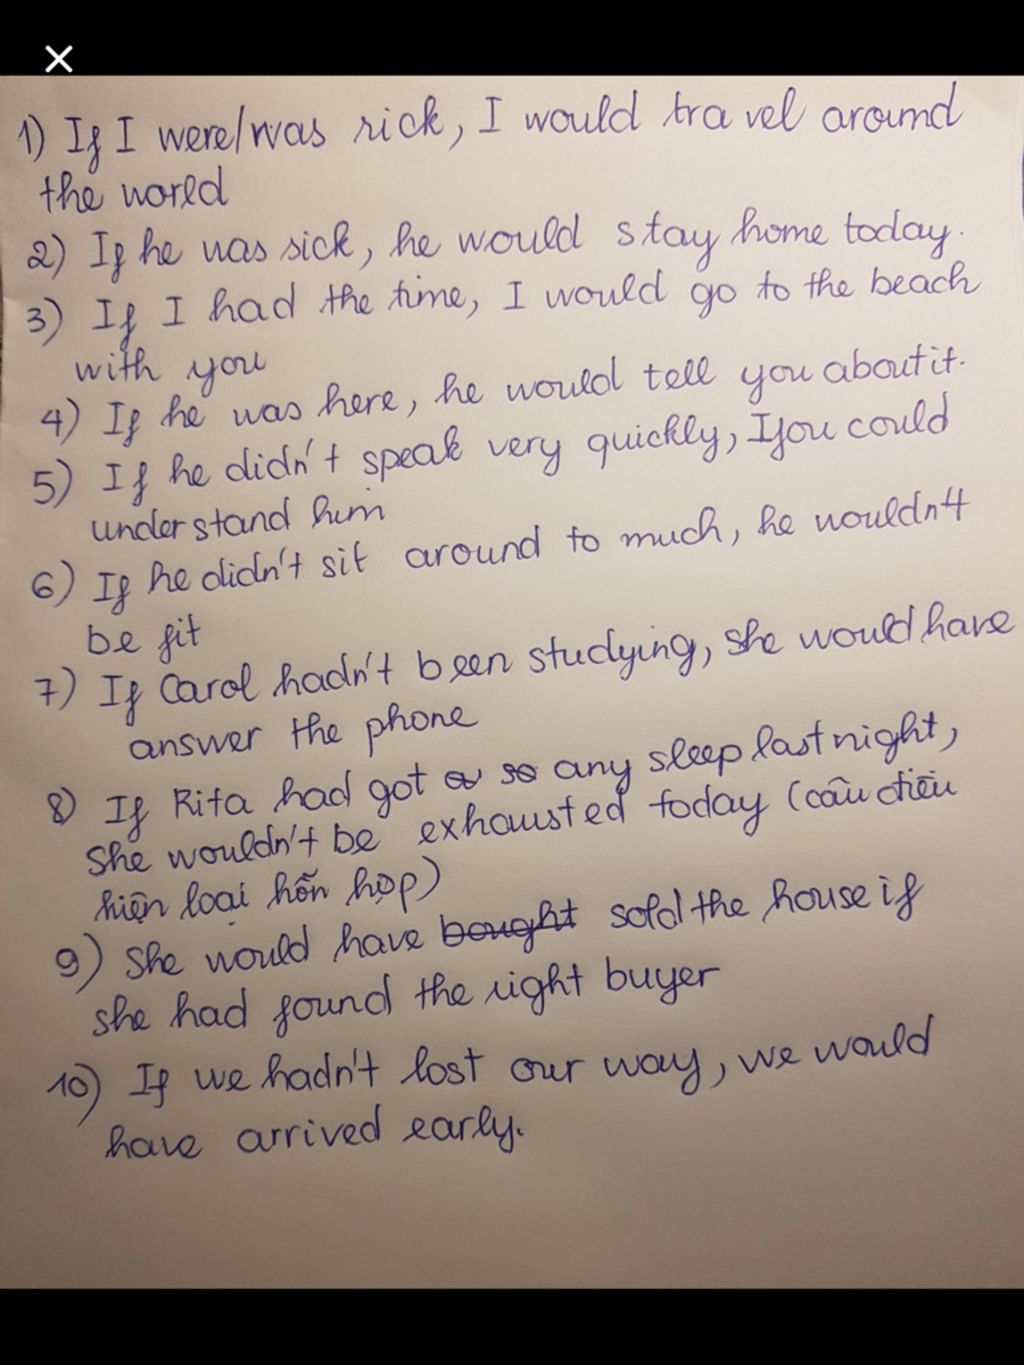 1) If I were/was rick, I would travel around
the world
2) If he was sick, he would stay home today.
3) If I had the time, I would go to the beach
with you
4) If he was here, he would tell you about it.
5) If he didn't speak very quickly, you could
understand him
6) If he didn't sit around to much, he wouldn't
be fit
7) If Carol hadn't been studying, she would have
answer the phone
8) If Rita had got any sleep last night,
she wouldn't be exhausted today (câu điều
kiện loại hỗn hợp)
9) She would have bought sold the house if
she had found the right buyer
10) If we hadn't lost our way, we would
have arrived early.